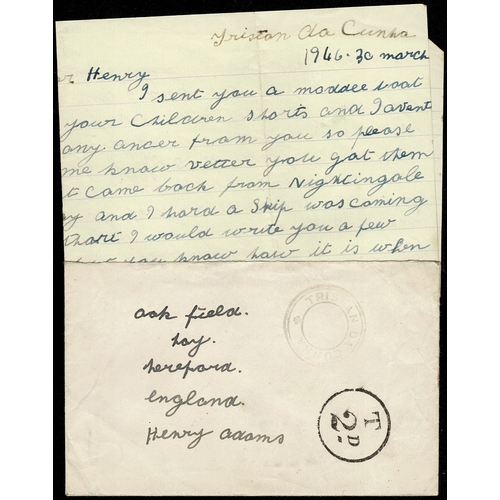 Tristan da Cunha
1946. 30 march
Henry
I sent you a moddee boat
your Children shorts and I avent
any ancer fram you so please
me know vetter you gat them
t came back fram Nightingale
ay and I hard a Ship was coming
thart I would write you a few
but you know haw it is when
TRISTAN DA
oak field.
hay.
hereford.
England.
Henry adams
T
2D.